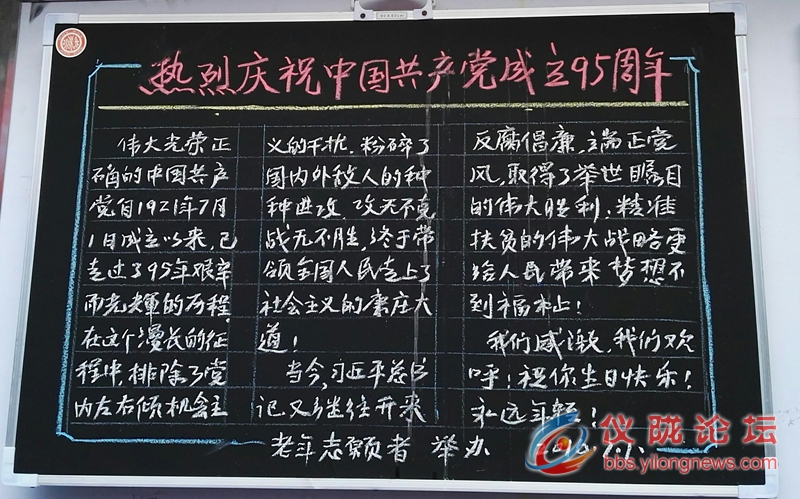 热烈庆祝中国共产党成立95周年
伟大光荣正
确的中国共产
党自1921年7月
1日成立以来,已
走过了95年艰辛
而光辉的历程,
在这个漫长的征
程中,排除了党
内左右倾机会主
义的干扰,粉碎了
国内外敌人的种
种进攻,攻无不克
战无不胜,终于带
领全国人民走上了
社会主义的康庄大
道!
当今,习近平总书
记又继往开来,
反腐倡廉,端正党
风,取得了举世瞩目
的伟大胜利,精准
扶贫的伟大战略更
给人民带来梦想不
到福祉!
我们感激,我们欢
呼!祝你生日快乐!
永远年轻!
老年志愿者 举办
仪陇论坛
bbs.yilongnews.com